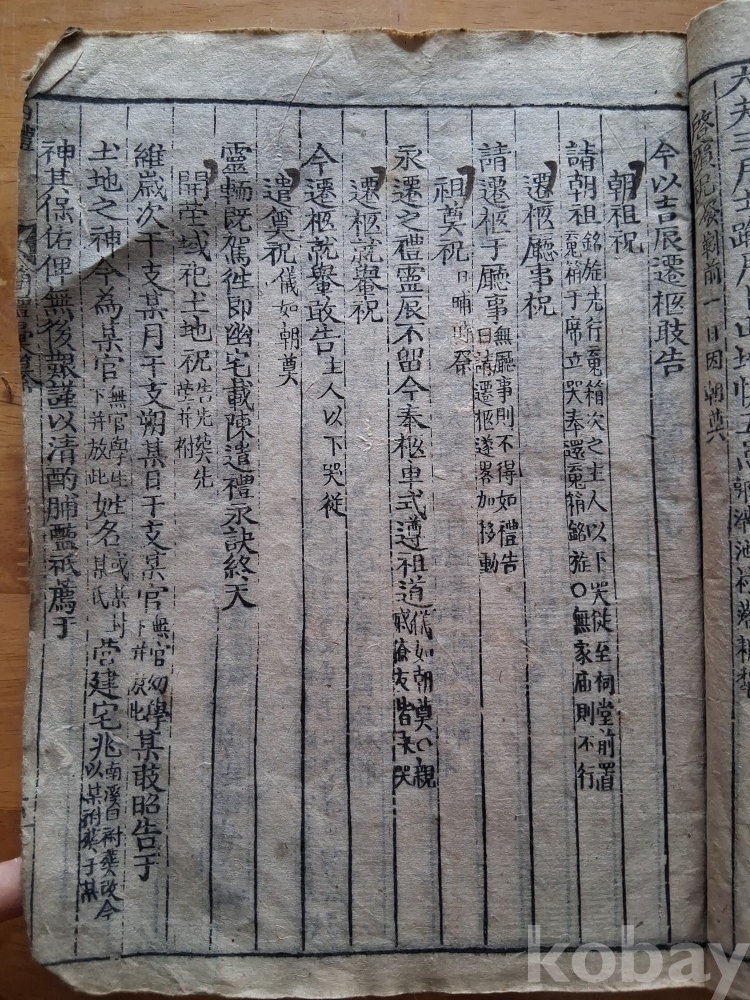 啓殯祝發靷前一日因朝奠
今以吉辰遷柩敢告
朝祖祝
請朝祖銘旌先行魂箱次之主人以下哭從至祠堂前置魂箱于席立哭奉還魂箱銘旌○無家庙則不行
遷柩廳事祝
請遷柩于廳事無廳事則不得如禮告曰請遷柩遂畧加移動
祖奠祝日晡時祭
永遷之禮靈辰不留今奉柩車式遵祖道儀如朝奠○親戚
遷柩就轝祝
今遷柩就轝敢告主人以下哭從
遣奠祝儀如朝奠
靈輀既駕徃即幽宅載陳遣禮永訣終天
開茔域祀土地祝
維歳次干支某月干支朔某日干支某官無官幼學某敢昭告于
土地之神今為某官無官學生下并放此姓名或某封某氏营建宅兆南溪曰祔葬改今以某祔葬于某
神其保佑俾無後艱謹以清酌脯醢祇薦于
kobay